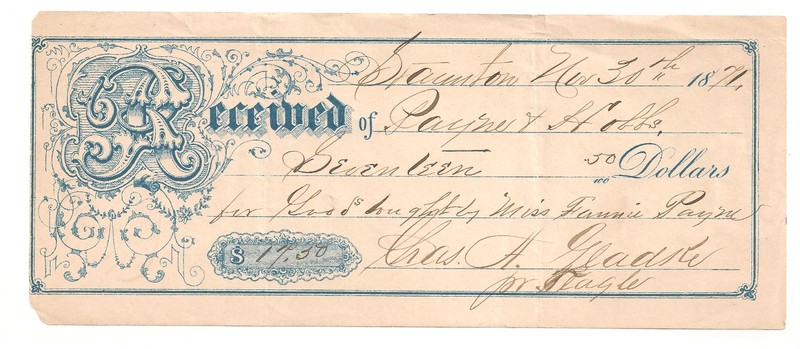 Staunton Nov 30th 1871.
Received of Payne & Hobbs,
Seventeen 50/100 Dollars
for Goods bought by Miss Fannie Payne
$ 17.50 Chas. A. Gladke
pr Nagle